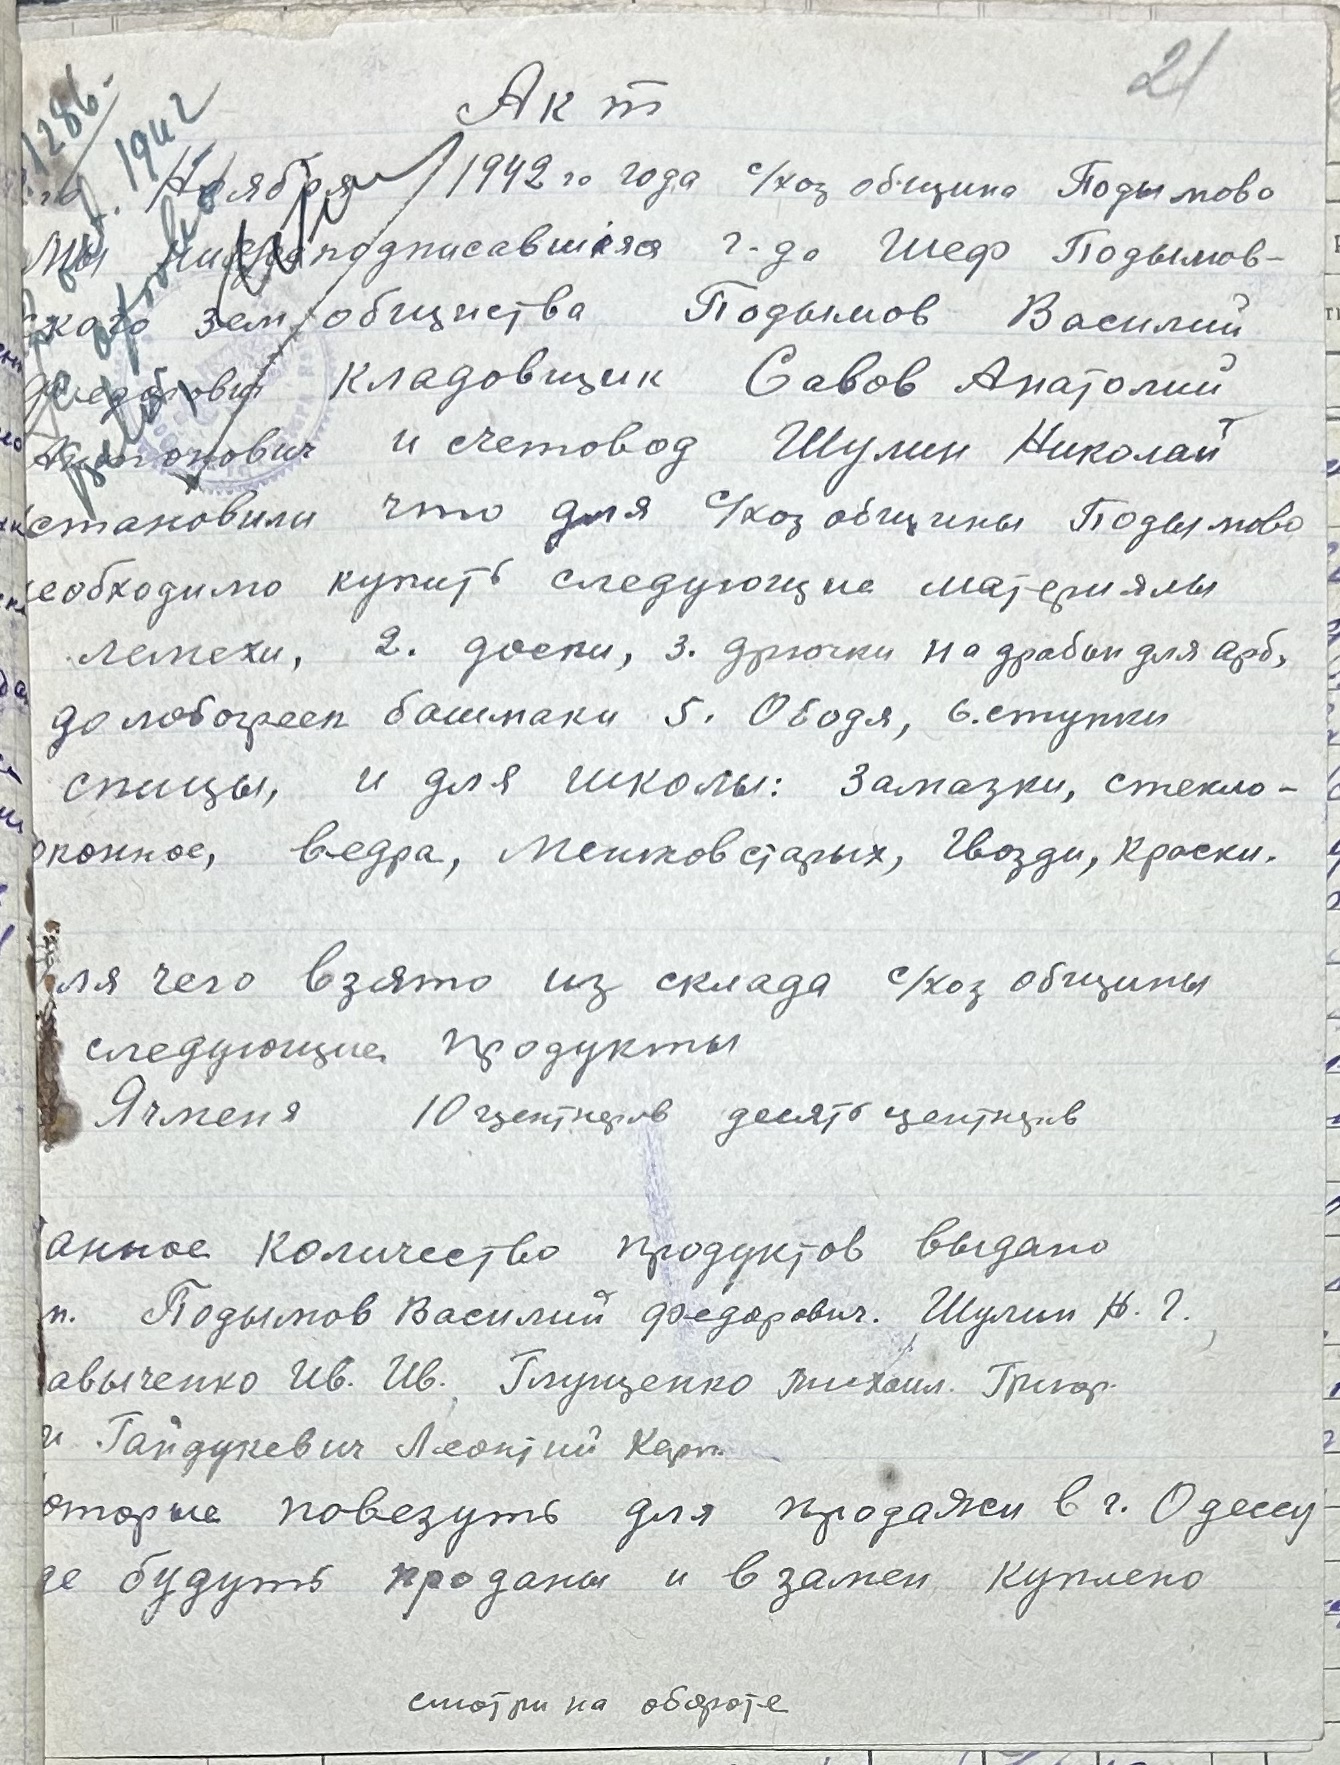 21
Акт
1286
1942
Ноября 1942 го года с/хоз община Подымово
Мы нижеподписавшиеся г-да Шеф Подымов-
ского зем общества Подымов Василий
Федорович кладовщик Савов Анатолий
Антонович и счетовод Шулин Николай
становили что для с/хоз общины Подымово
необходимо купить следующие материялы
лемехи, 2. доски, 3. дрючки на драбын для арб,
до лобогреек башмаки 5. Ободя, 6. ступки
спицы, и для школы: Замазки, стекло-
оконное, ведра, Мешков старых, Гвозди, Краски.
ля чего взято из склада с/хоз общины
следующие продукты
Ячменя 10 центнеров десять центнеров
анное количество продуктов выдано
п. Подымов Василий Федорович. Шулин Н. Г.,
авыченко Ив. Ив., Глущенко Михаил. Григор.
и Гайдукевич Леонтий Карп.
оторые повезуть для продажи в г. Одессу
де будуть проданы и взамен куплено
смотри на обороте